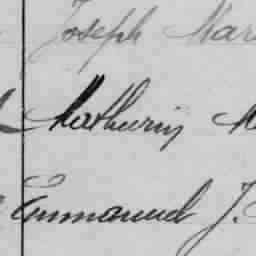 Joseph Mar
Mathurin M
Emmanuel J.